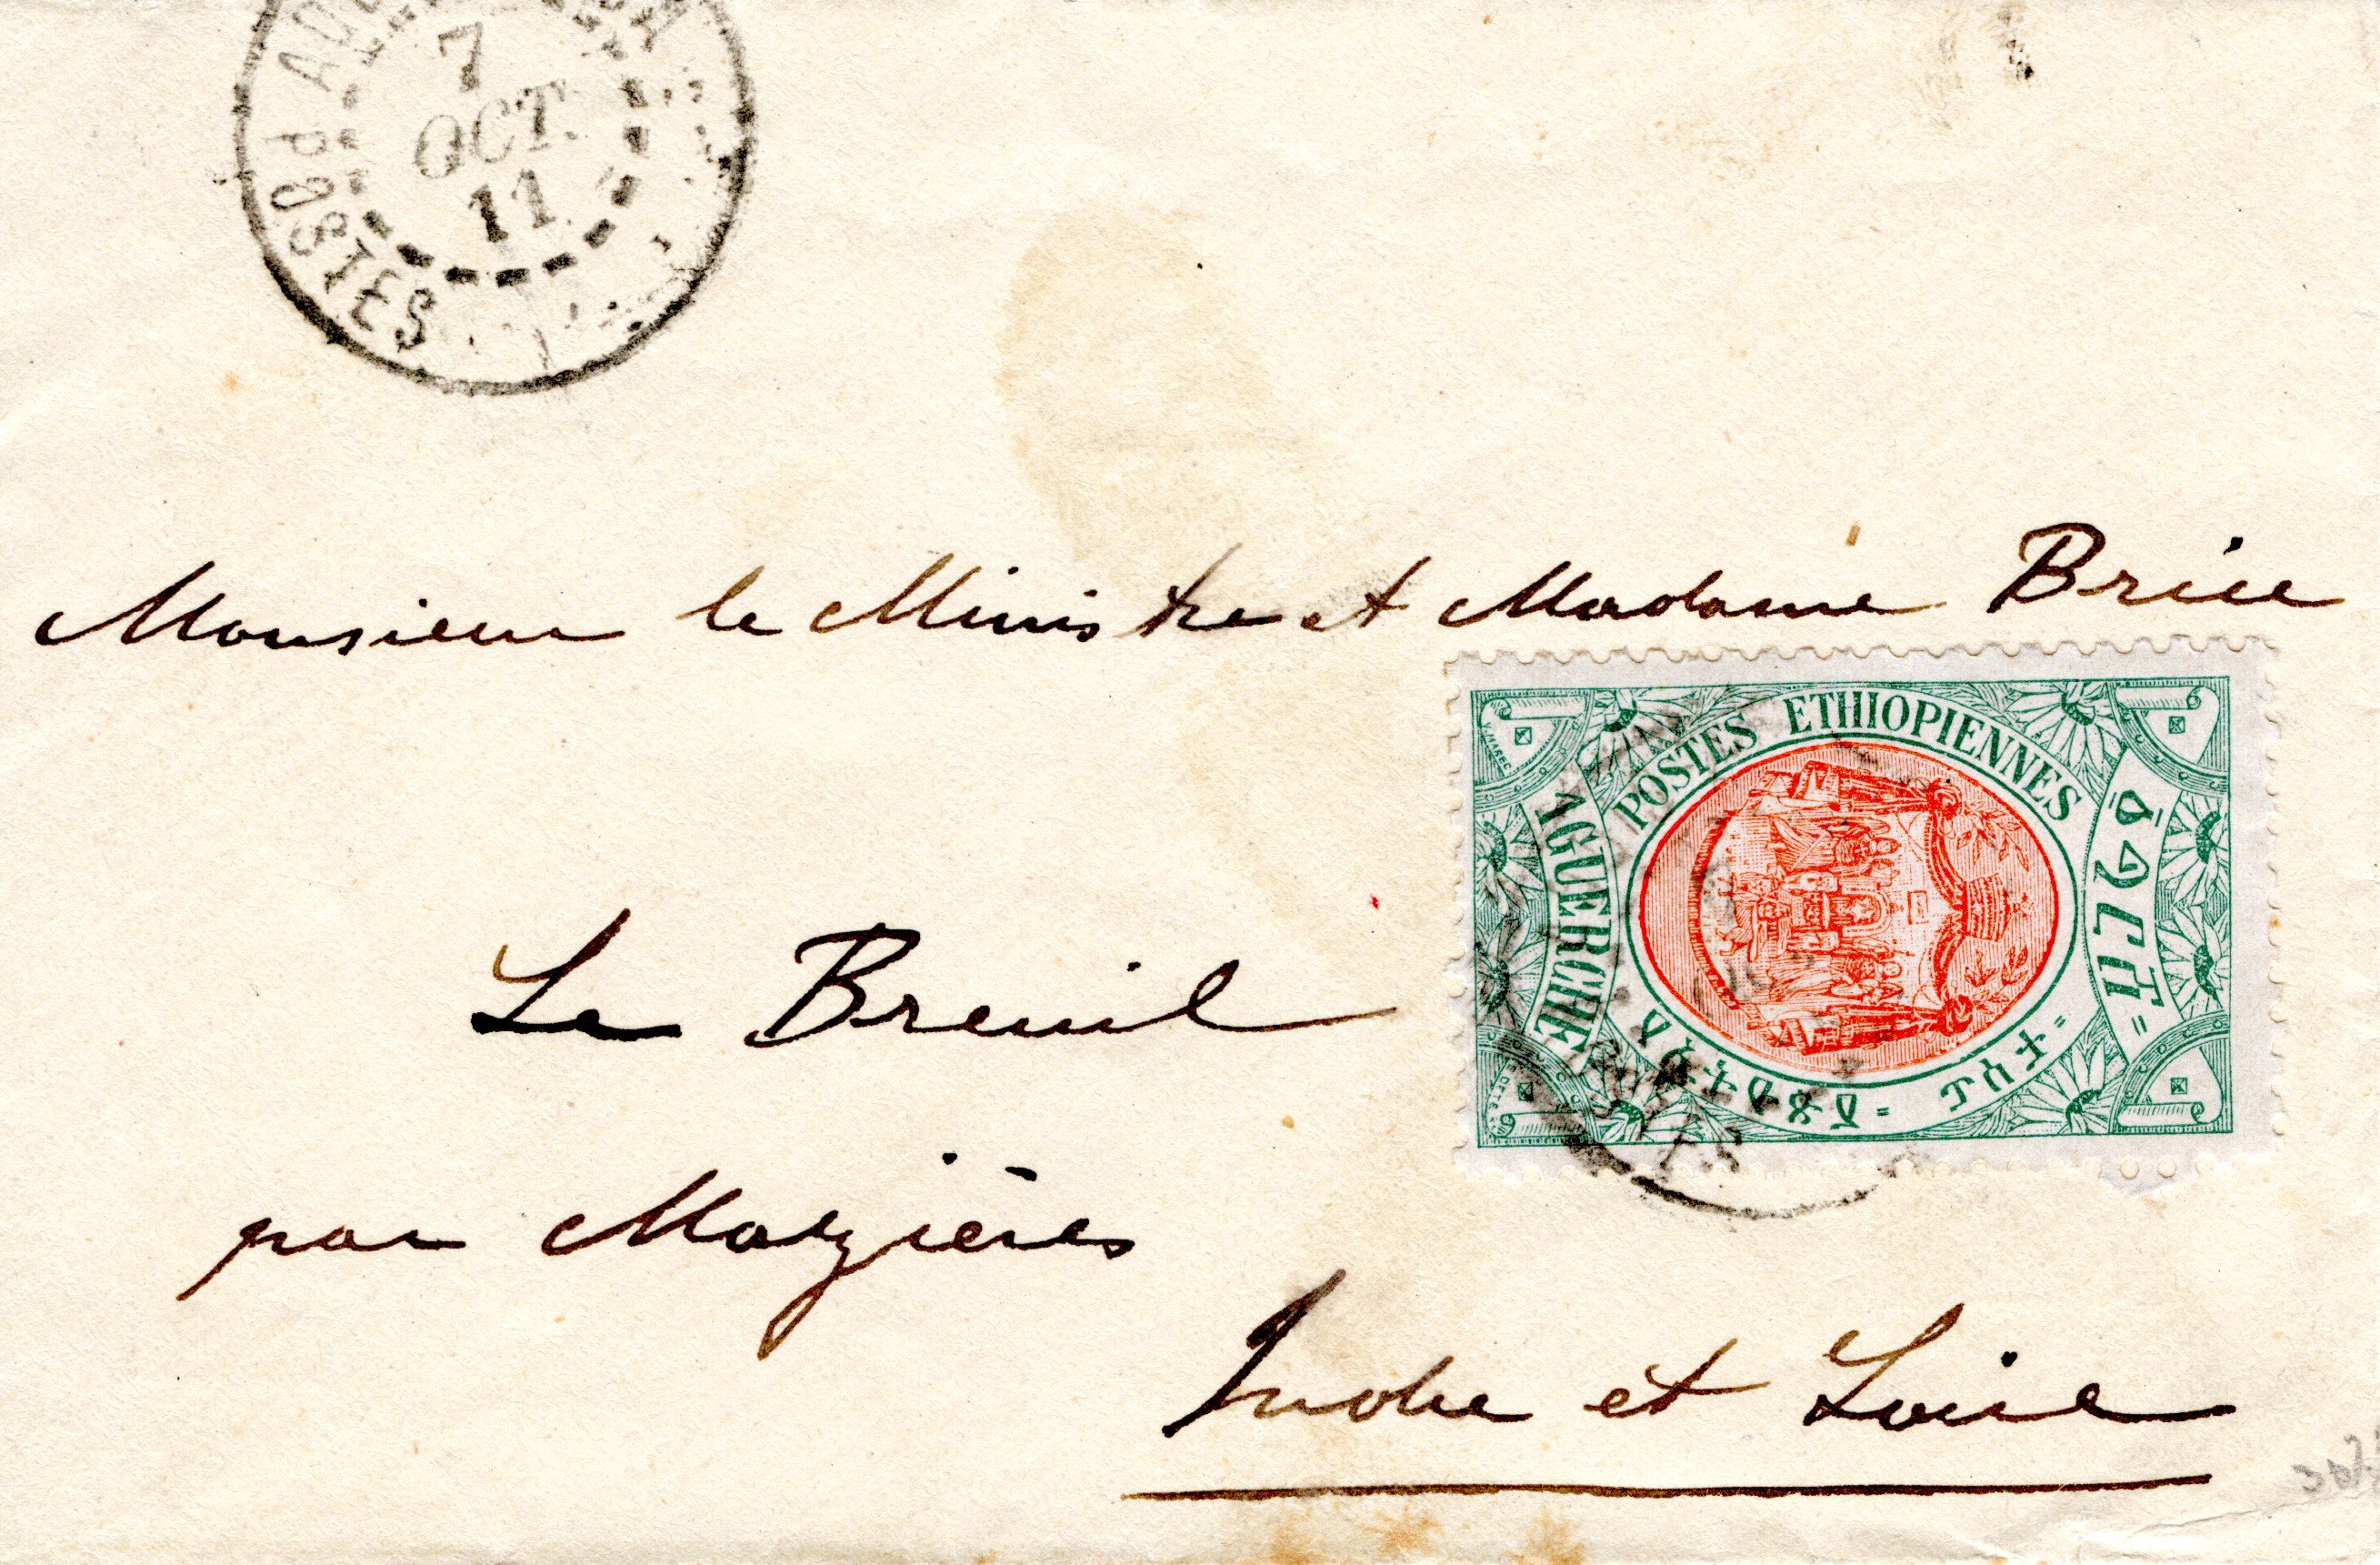 POSTES d'ADD
7
OCT.
11
Monsieur le Ministre et Madame Brice
POSTES ETHIOPIENNES
1 GUERCHE
Le Breuil
par Mazières
Indre et Loire